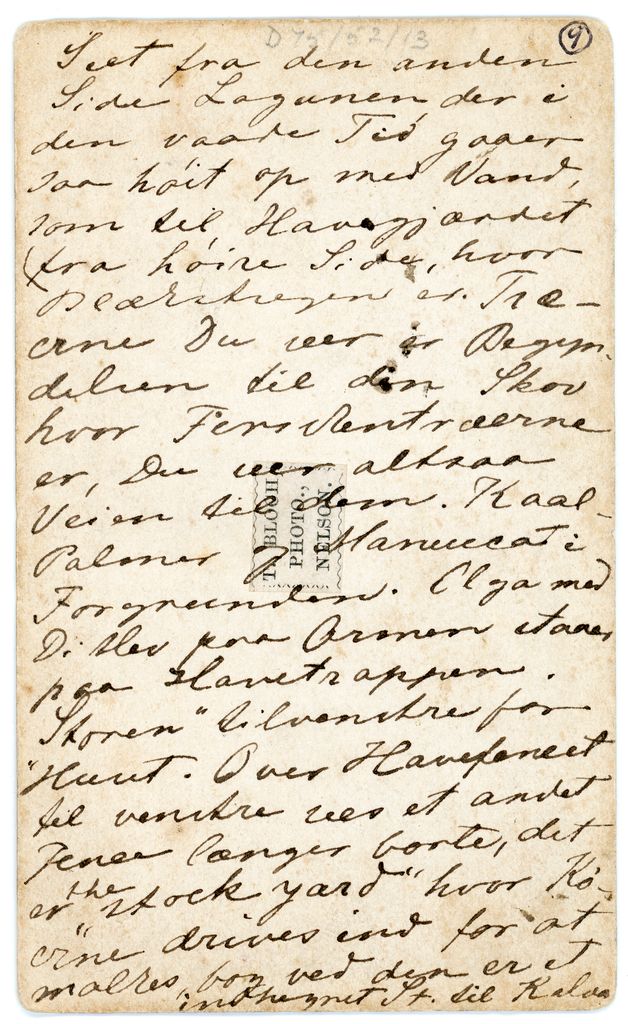 D75/52/13
9
Seet fra den anden
Side Lagunen der i
den vaade Tid gaaer
saa höit op med Vand,
som til Havegjærdet
(fra höire Side, hvor
er. Træ-
erne Du seer er Begyn-
delsen til den Skov
hvor
er, Du seer altsaa
Veien til dem. Kaal-
Palmer og i
Forgrunden. Olga med
Ditlev paa Armen staaer
paa Havetrappen.
Storen" tilvenstre for
"Huset. Over Havefencet
til venstre sees et andet
Fence længer borte, det
er "the stock yard" hvor Kö-
erne drives ind for at
malkes, bag ved den er et
indhegnet St. til Kalve
TYREE BLOCH
PHOTO.,
NELSON.